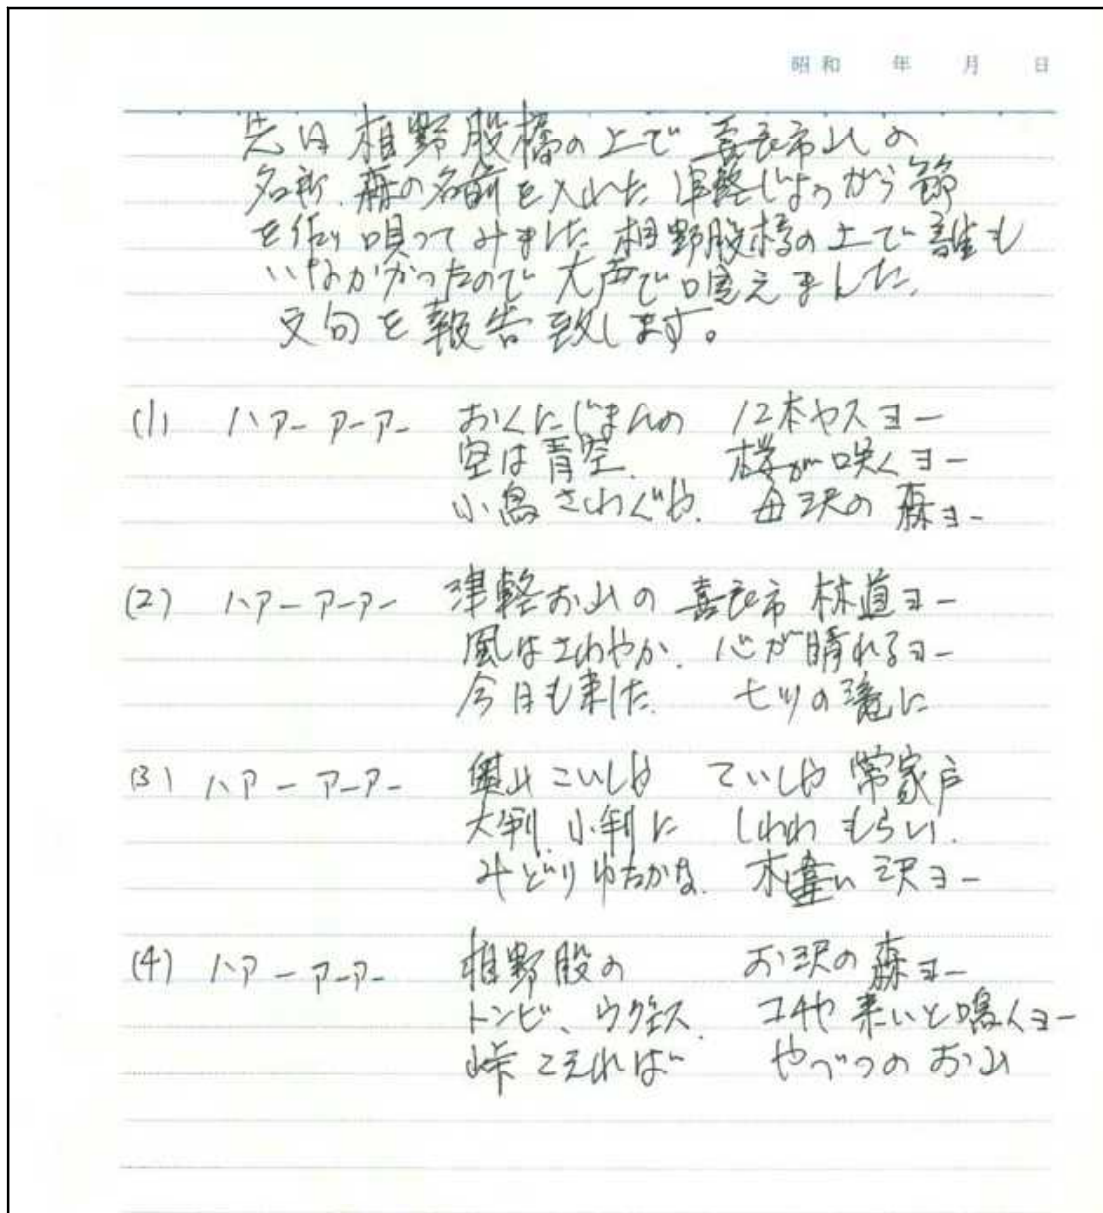 昭和 年 月 日
先日相野股橋の上で喜良市山の
名所、森の名前を入れた津軽じょんがら節
を作り唄ってみました相野股橋の上で誰も
いなかがったので大声で唄えました、
文句を報告致します。
(1) ハアー アーアー おくにじまんの 12本ヤスヨー
空は青空、 桜が咲くヨー
小鳥さわぐや、 母沢の森ヨー
(2) ハアー アーアー 津軽お山の 喜良市林道ヨー
風はさわやか、 心が晴れるヨー
今日も来した、 七ツの滝に
(3) ハアー アーアー 奥山こいしや ていしや常家戸
大判、小判に しわわもらい、
みどりゆたかな、 木違い沢ヨー
(4) ハアー アーアー 相野股の お沢の森ヨー
トンビ、ウグエス、 コチや来いと鳴くヨー
峠こえれば やべつのお山